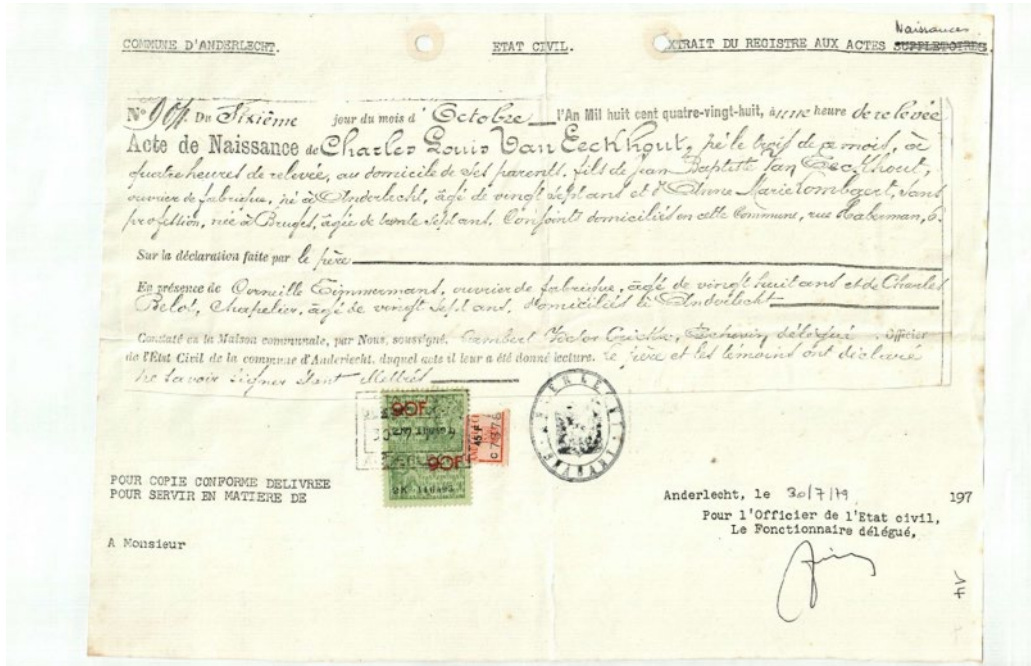 Naissances
COMMUNE D'ANDERLECHT. ETAT CIVIL. EXTRAIT DU REGISTRE AUX ACTES SUPPLETOIRES.
N° 904 Du Sixième jour du mois d'Octobre l'An Mil huit cent quatre-vingt-huit, à une heure de relevée
Acte de Naissance de Charles Louis Van Eeckhout, né le trois de ce mois, à
quatre heures de relevée, au domicile de ses parents, fils de Jean Baptiste Van Eeckhout,
ouvrier de fabrique, né à Anderlecht, âgé de vingt sept ans et d'Anne Marie Lombaert, sans
profession, née à Bruges, âgée de trente sept ans. Conjoints domiciliés en cette Commune, rue Haberman, 6.
Sur la déclaration faite par le père
En présence de Corneille Timmermans, ouvrier de fabrique, âgé de vingt huit ans et de Charles
Belot, chapelier, âgé de vingt sept ans, domiciliés à Anderlecht
Constaté en la Maison communale, par Nous, soussigné, Lambert Victor Crickx, Echevin délégué Officier
de l'Etat Civil de la commune d'Anderlecht, duquel acte il leur a été donné lecture. Le père et les témoins ont déclaré
ne savoir signer étant illettrés
90F
90F
45 F
C 7378
ANDERLECHT
BRABANT
POUR COPIE CONFORME DELIVREE
POUR SERVIR EN MATIERE DE
A Monsieur
Anderlecht, le 30/7/79 197
Pour l'Officier de l'Etat civil,
Le Fonctionnaire délégué,